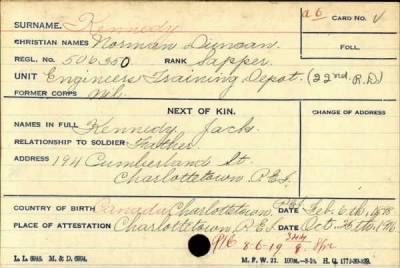 a6 CARD NO.
SURNAME. Kennedy
CHRISTIAN NAMES Norman Duncan FOLL.
REGL. NO. 506350 RANK Sapper.
UNIT Engineers Training Depot. (22nd. R.D)
FORMER CORPS Nil.
NEXT OF KIN. CHANGE OF ADDRESS
NAMES IN FULL Kennedy Jack
RELATIONSHIP TO SOLDIER Father
ADDRESS 194 Cumberland St.
Charlottetown P.E.I.
COUNTRY OF BIRTH Canada Charlottetown P.E.I. DATE Feb. 6th,
PLACE OF ATTESTATION Charlottetown P.E.I. DATE Oct.
8-6-19
L. L. M. & D. M. F. W. 22.